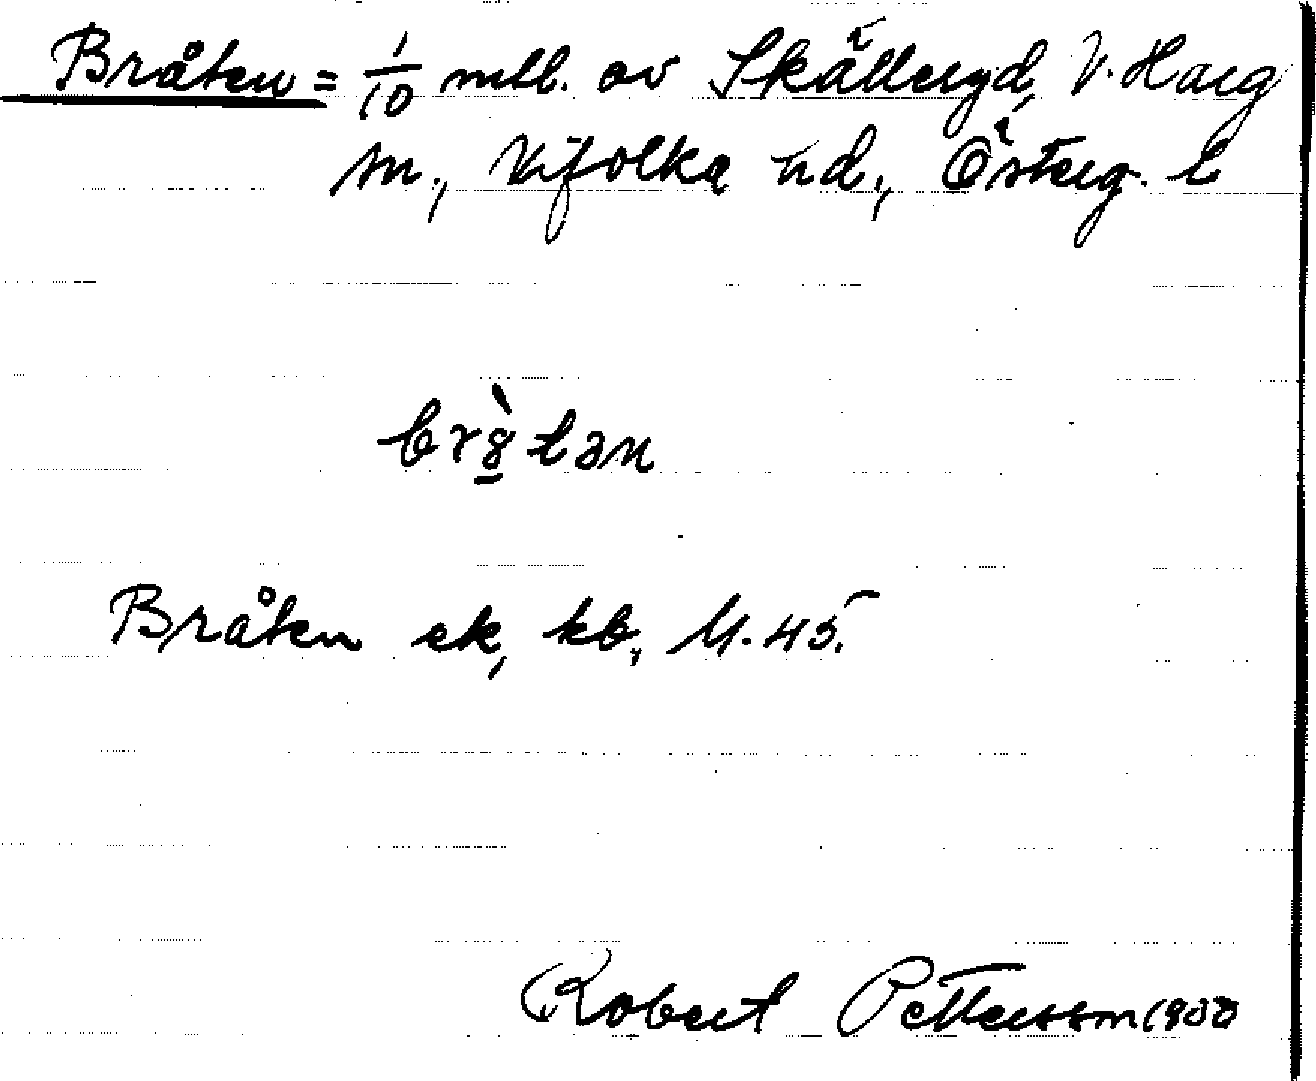 Bråten = 1/10 mtl. av Skälleryd, V. Harg
sn., Vifolka hd., Österg. l
br8̲̀tən
Bråten ek, kb, M. 45.
Robert Pettersson 1900